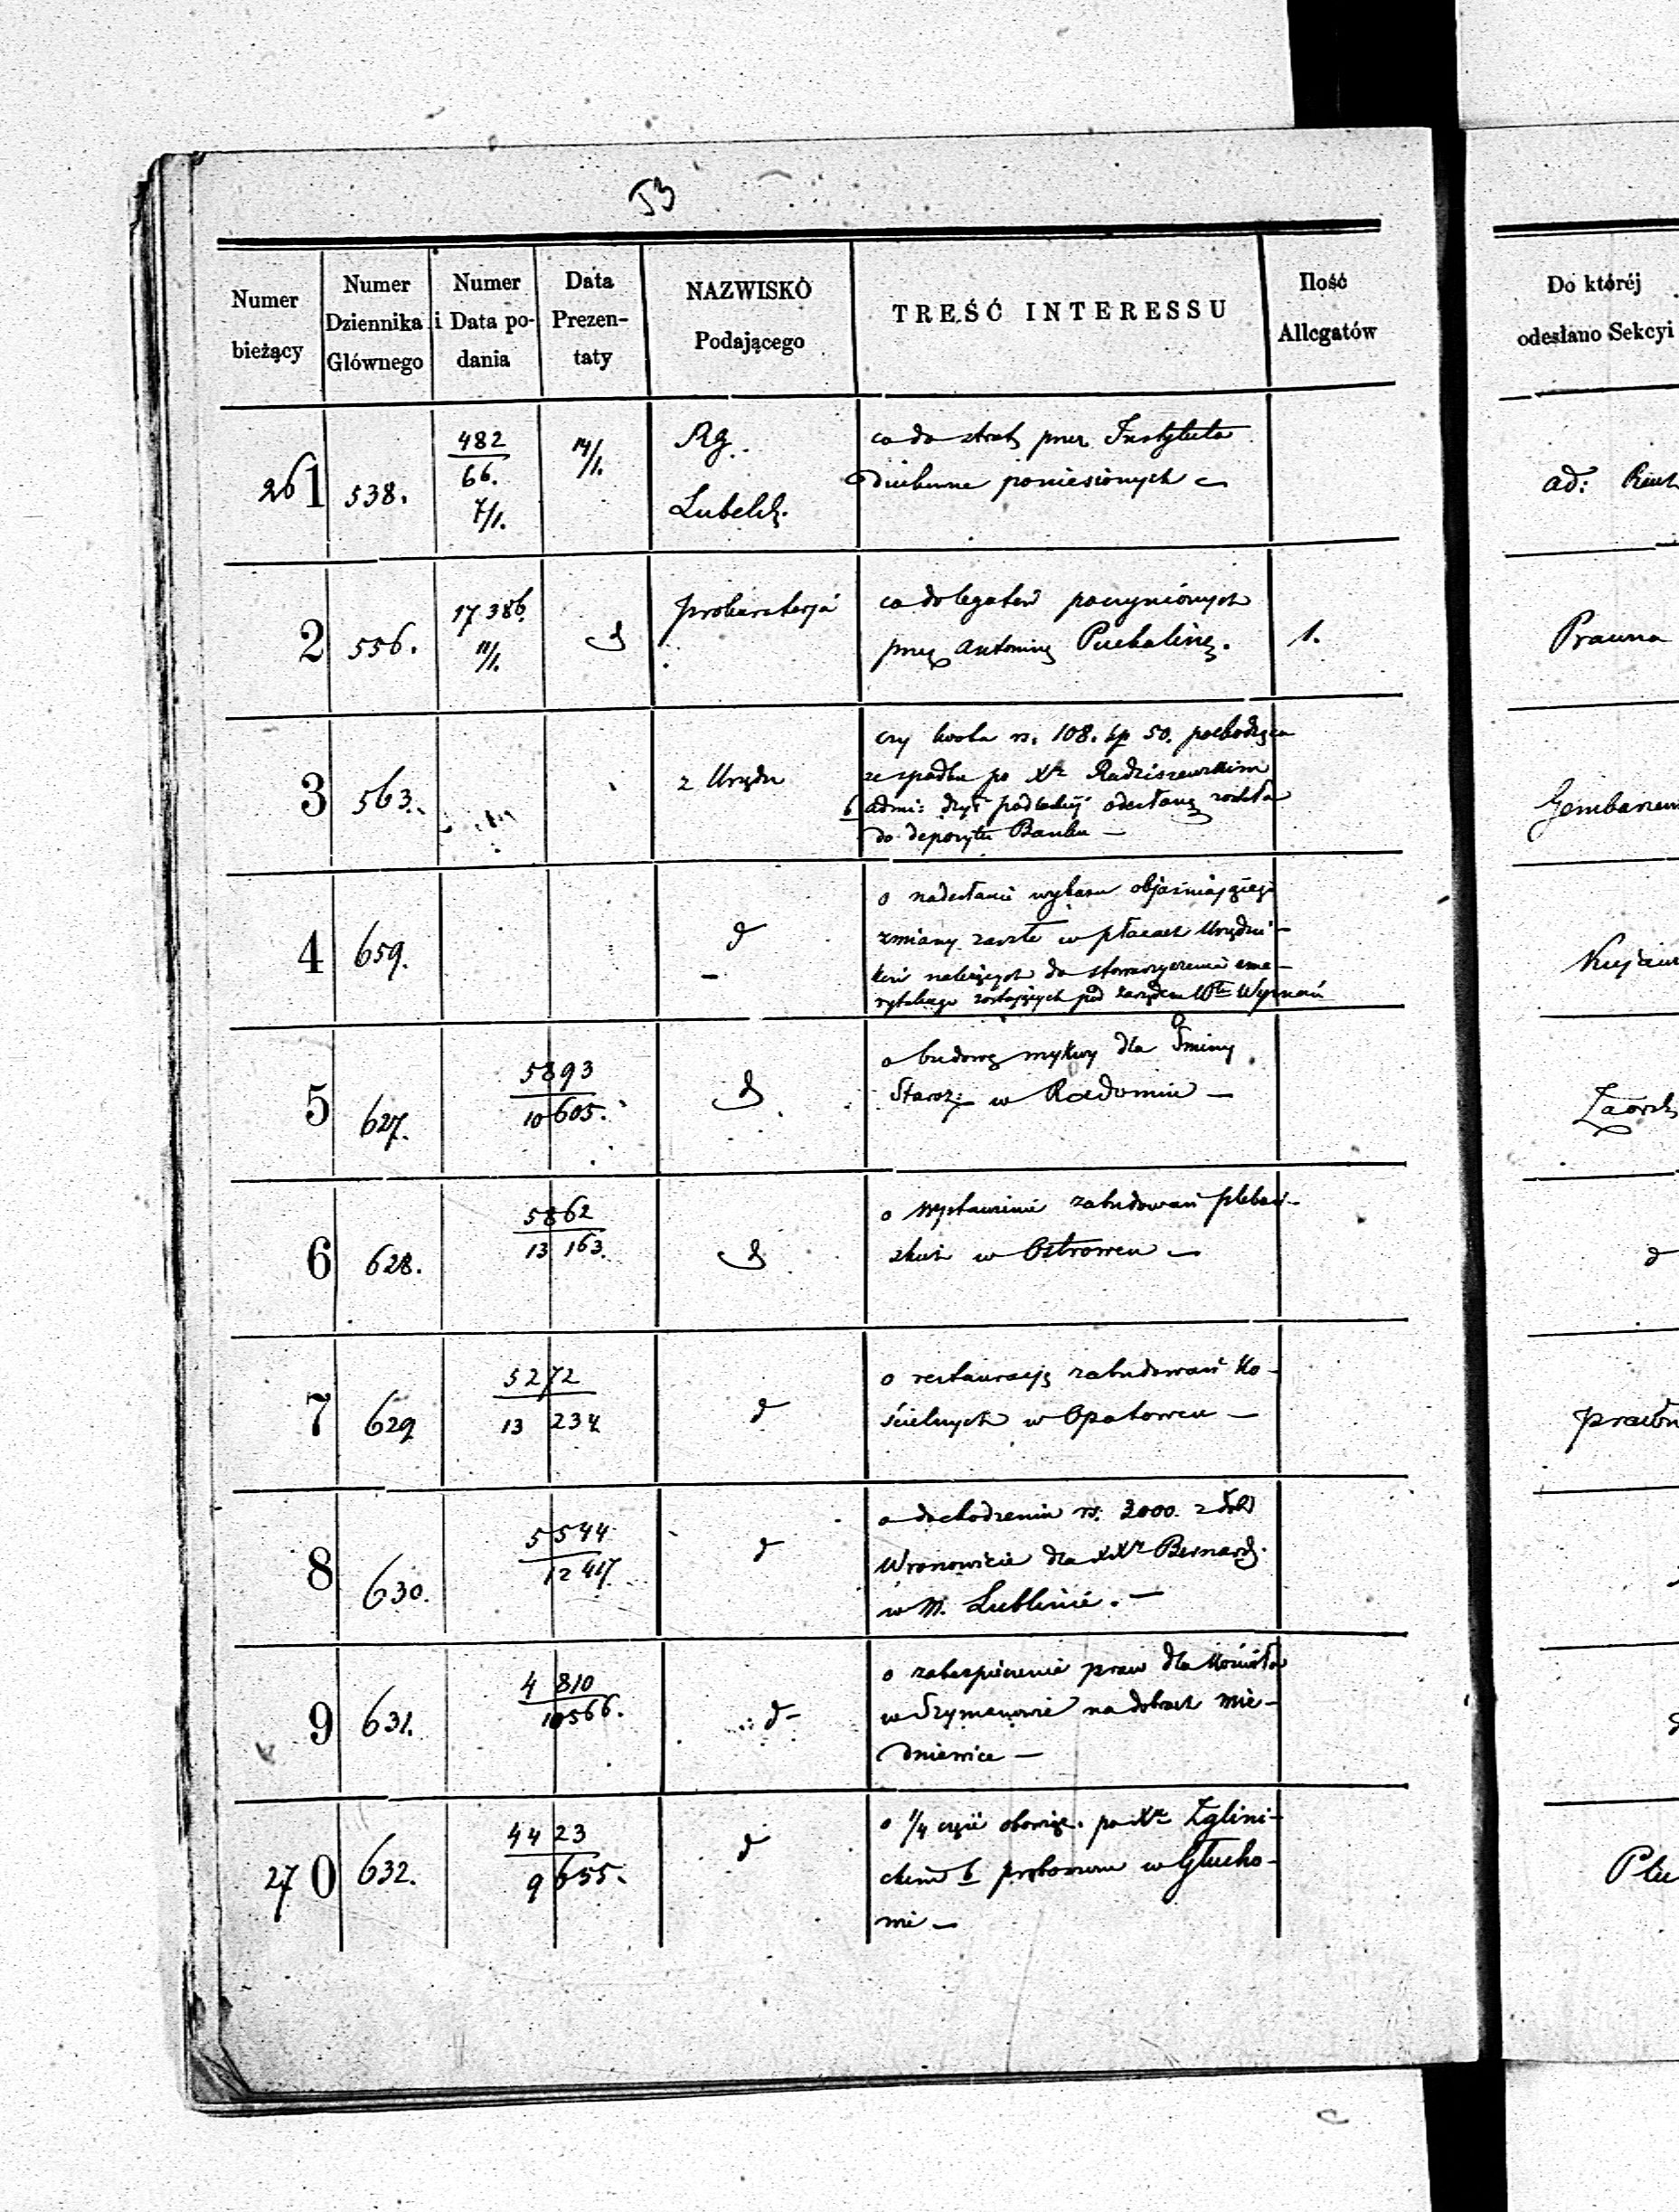 53
Numer bieżący
Numer Dziennika Głównego
Numer i Data podania
Data Prezentaty
NAZWISKO Podającego
TREŚĆ INTERESSU
Ilość Allegatów
Do któréj odesłano Sekcyi
261 538. 482/66. 7/1. 14/1. Rg. Lubelsk.
co do strat przez Instytuta
Duchowne poniesionych
ad:
2 556. 17.386. 11/1. d Prokuratorja
co do legatów poczynionych
przez Antoninę Puchalinę.
1.
Prawna
3 563. z Urzędu
czy kwota rs. 108. kp 50. pochodząca
ze spadku po Xdz Radziszewskim
b admi: dyec podlaskiej odesłaną została
do depozytu Banku —
4 659. d
o nadesłanie wykazu objaśniającego
zmiany zaszłe w płacach Urzędni-
ków należących do stowarzyszenia eme-
rytalnego zostających pod zarządem Wyznań
5 627. 5893/10605. d
o budowę mykwy dla Gminy
Staroz: w Radomiu —
6 628. 5862/13163. d
o wystawienie zabudowań plebań-
skich w Ostrowcu —
d
7 629 5272/13234 d
o restauracyę zabudowań Ko-
ścielnych w Opatowcu —
8 630. 5544/12417. d
o dochodzeniu rs. 3000. z dóbr
Wronowicie dla XXy Bernard.
w m. Lublinie. —
9 631. 4810/10566. d
o zabezpieczenie praw dla Kościoła
w Szymanowie na dobrach Mie-
dniewice —
270 632. 4423/9655. d
o 1/4 części obowiąz. po Xdz Zglini-
ckim b proboszczu w Głucho-
wie —